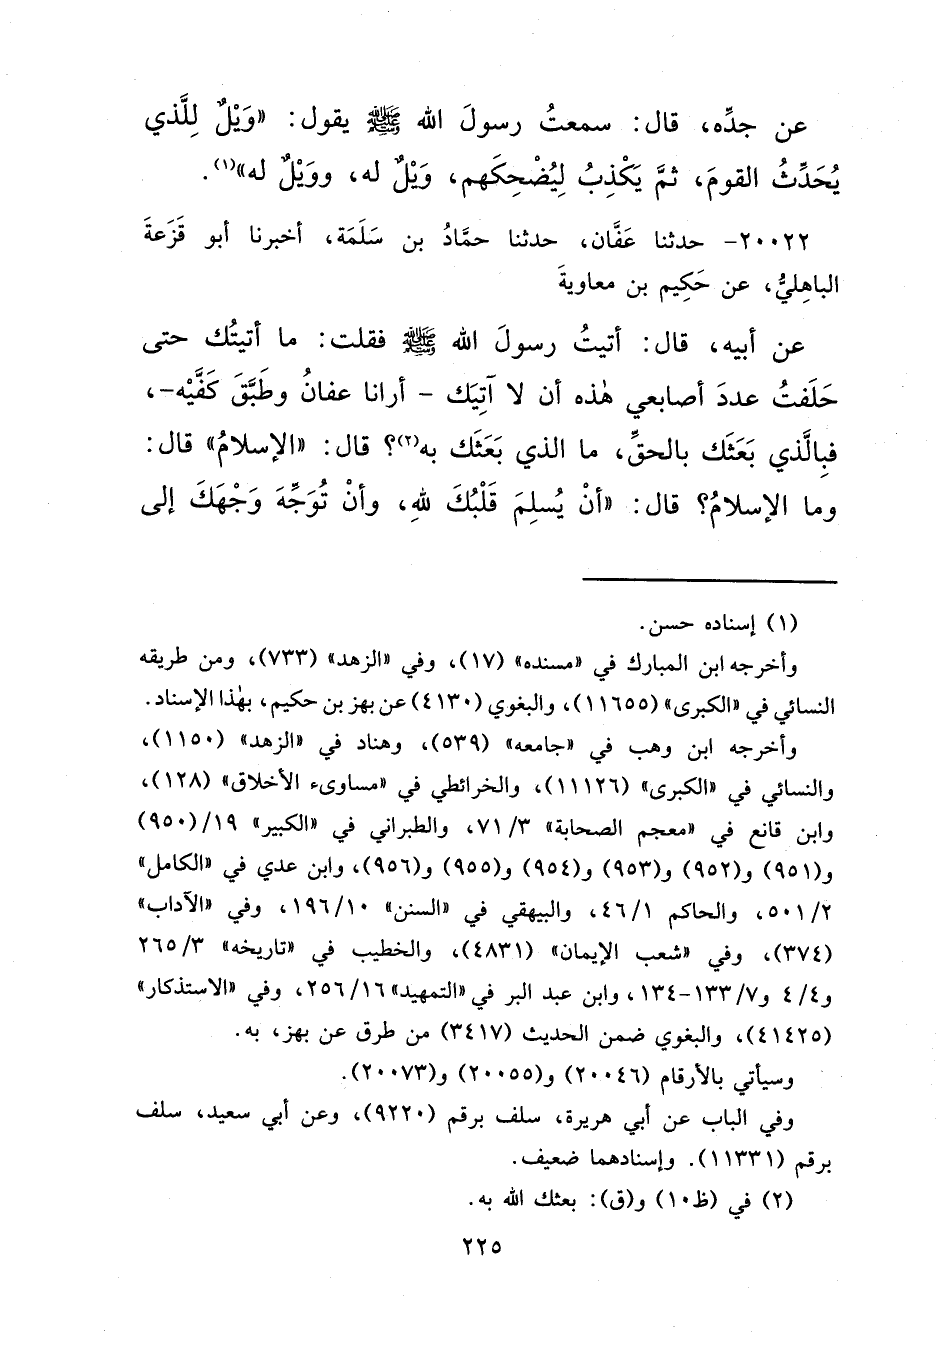 عن جدِّه، قال: سمعتُ رسولَ الله ﷺ يقول: «وَيْلٌ لِلَّذي
يُحَدِّثُ القومَ، ثمَّ يَكْذِبُ لِيُضْحِكَهم، وَيْلٌ له، ووَيْلٌ له»(١).
٢٠٠٢٢- حدثنا عَفَّان، حدثنا حمَّادُ بن سَلَمَة، أخبرنا أبو قَزَعةَ
الباهِليُّ، عن حَكِيم بن معاويةَ
عن أبيه، قال: أتيتُ رسولَ الله ﷺ فقلت: ما أتيتُك حتى
حَلَفتُ عددَ أصابعي هٰذه أن لا آتِيَك - أرانا عفانُ وطَبَّقَ كَفَّيْه-،
فبِالَّذي بَعَثَك بالحقِّ، ما الذي بَعَثَك به(٢)؟ قال: «الإسلامُ» قال:
وما الإسلامُ؟ قال: «أنْ يُسلِمَ قَلْبُكَ للهِ، وأنْ تُوَجِّهَ وَجْهَكَ إلى
(١) إسناده حسن.
وأخرجه ابن المبارك في «مسنده» (١٧)، وفي «الزهد» (٧٣٣)، ومن طريقه
النسائي في «الكبرى» (١١٦٥٥)، والبغوي (٤١٣٠) عن بهز بن حكيم، بهٰذا الإسناد.
وأخرجه ابن وهب في «جامعه» (٥٣٩)، وهناد في «الزهد» (١١٥٠)،
والنسائي في «الكبرى» (١١١٢٦)، والخرائطي في «مساوىء الأخلاق» (١٢٨)،
وابن قانع في «معجم الصحابة» ٧١/٣، والطبراني في «الكبير» ١٩/(٩٥٠)
و(٩٥١) و(٩٥٢) و(٩٥٣) و(٩٥٤) و(٩٥٥) و(٩٥٦)، وابن عدي في «الكامل»
٥٠١/٢، والحاكم ٤٦/١، والبيهقي في «السنن» ١٩٦/١٠، وفي «الآداب»
(٣٧٤)، وفي «شعب الإيمان» (٤٨٣١)، والخطيب في «تاريخه» ٢٦٥/٣
و٤/٤ و١٣٣/٧-١٣٤، وابن عبد البر في «التمهيد» ٢٥٦/١٦، وفي «الاستذكار»
(٤١٤٢٥)، والبغوي ضمن الحديث (٣٤١٧) من طرق عن بهز، به.
وسيأتي بالأرقام (٢٠٠٤٦) و(٢٠٠٥٥) و(٢٠٠٧٣).
وفي الباب عن أبي هريرة، سلف برقم (٩٢٢٠)، وعن أبي سعيد، سلف
برقم (١١٣٣١). وإسنادهما ضعيف.
(٢) في (ظ١٠) و(ق): بعثك الله به.
٢٢٥